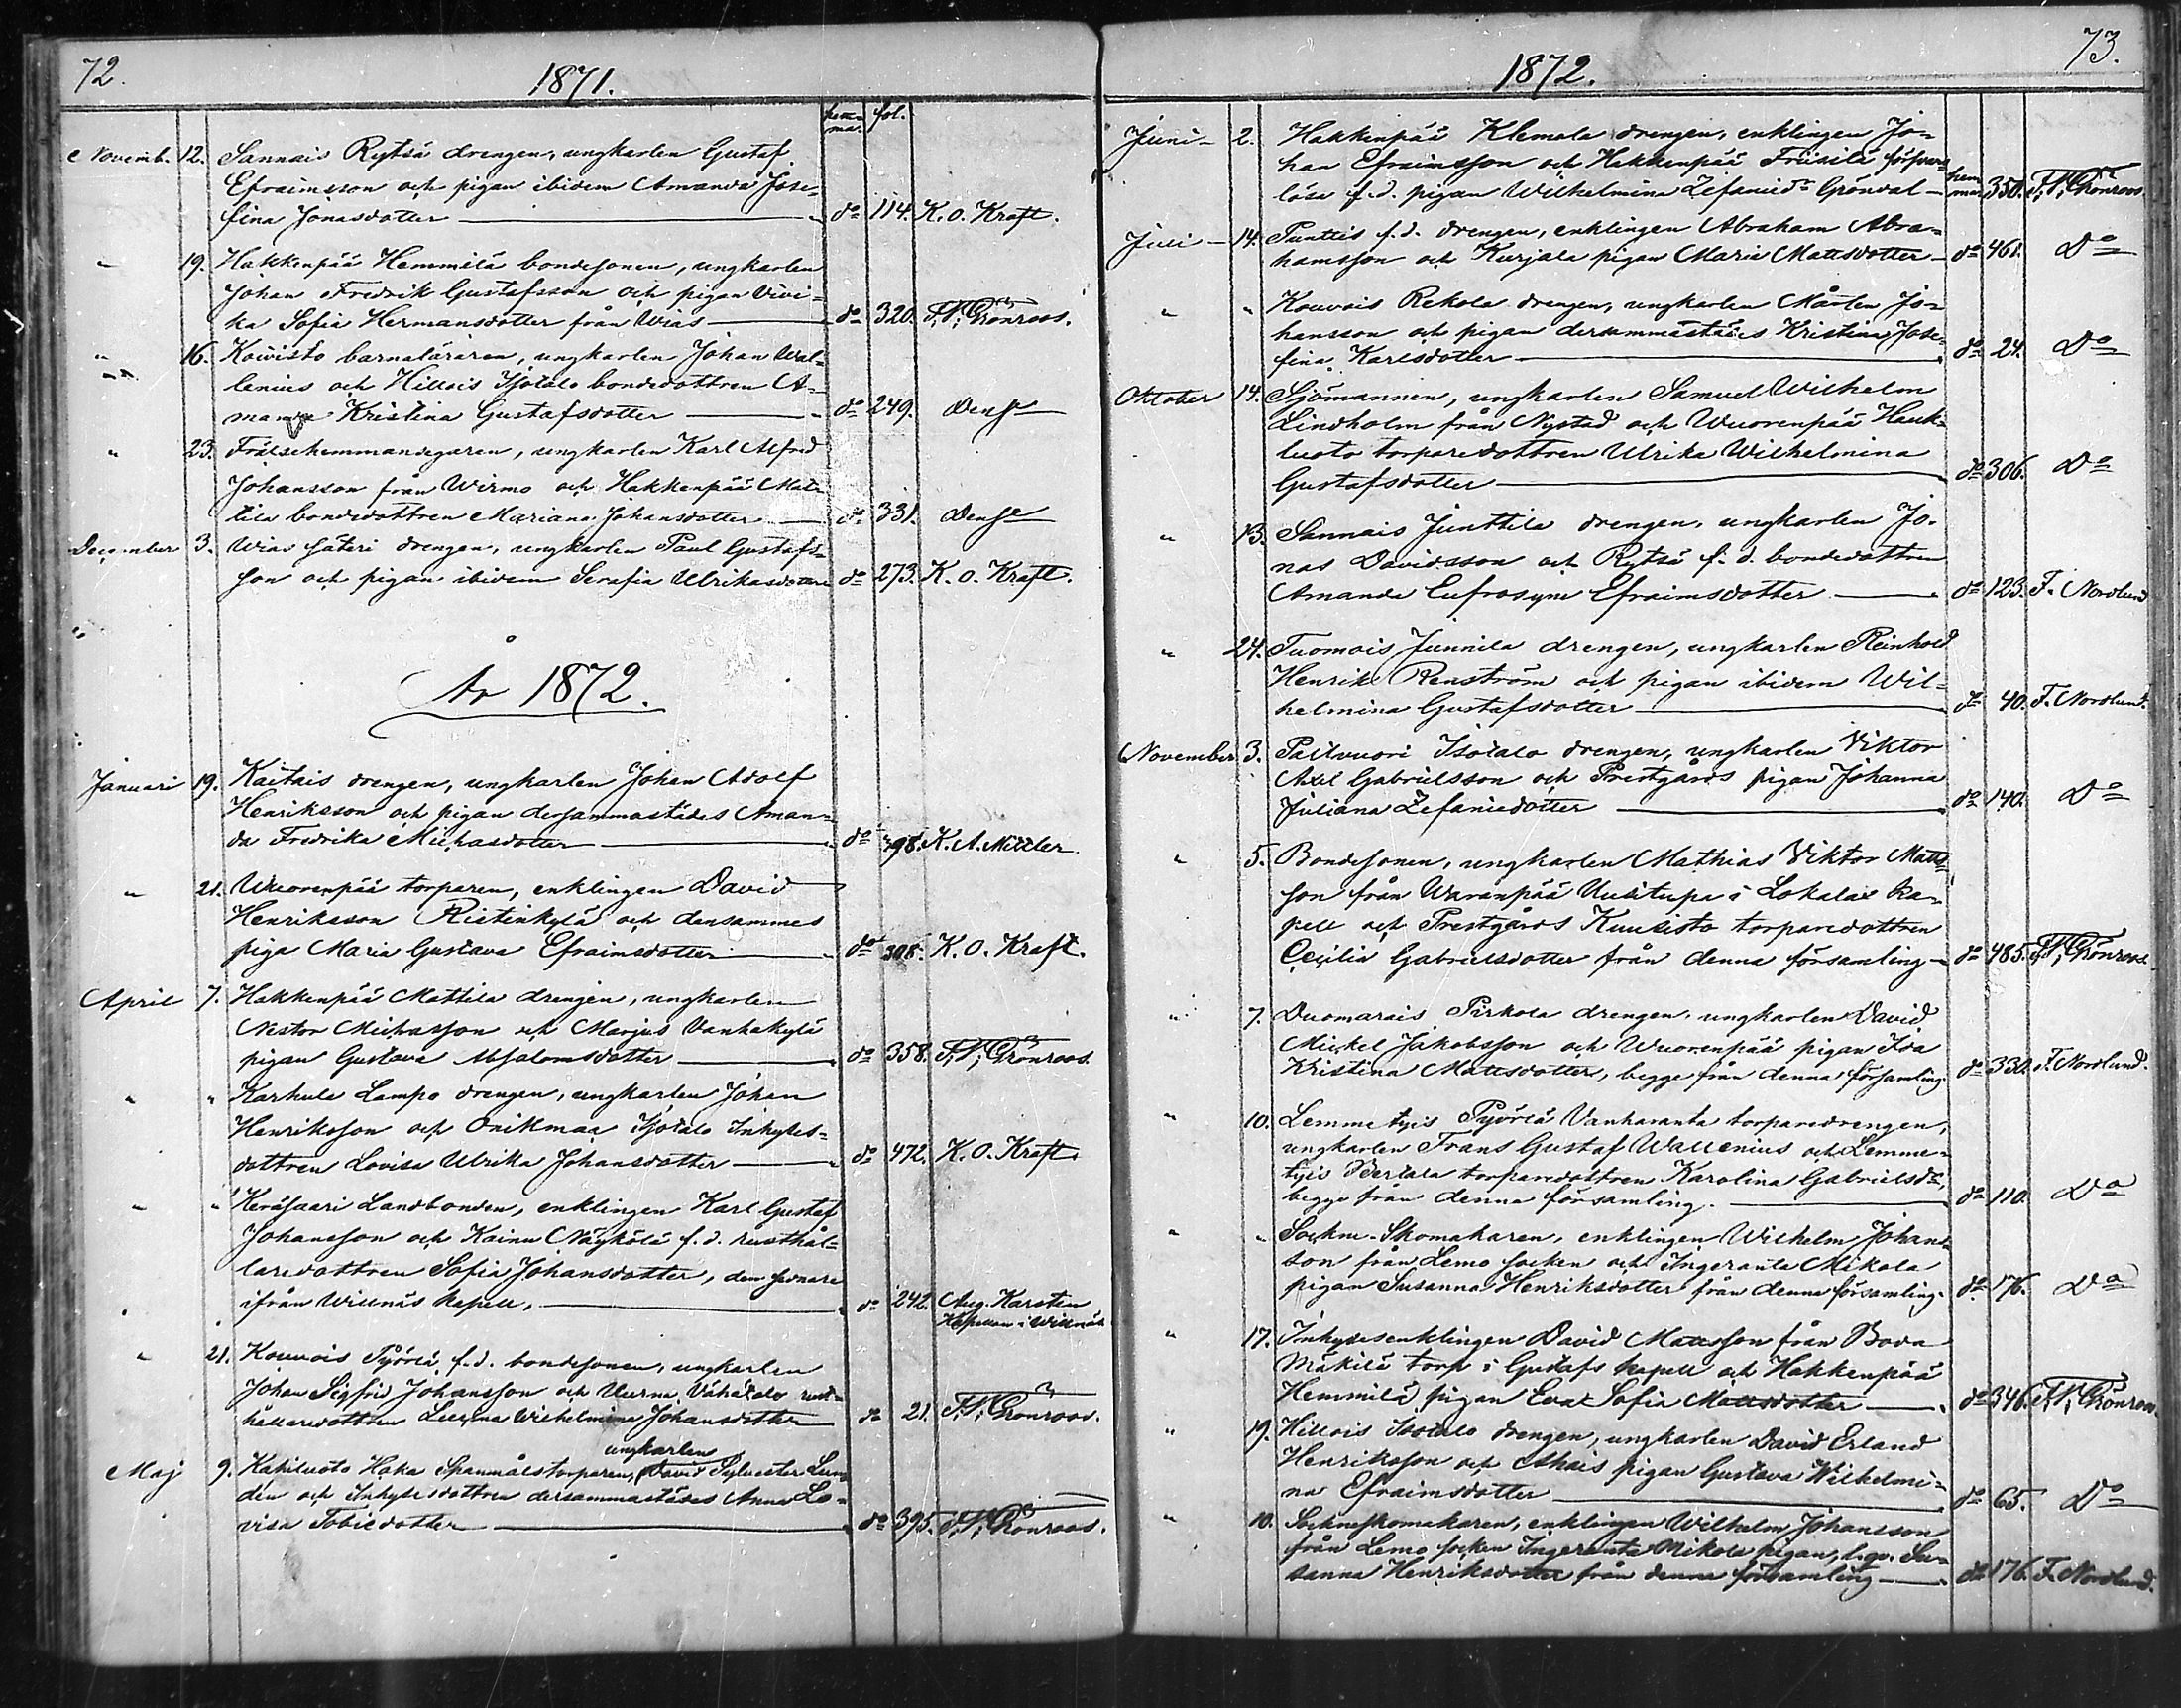 72.
1871.
hem-
ma. fol.
Novemb. 12. Sannais Rytsä drengen, ungkarlen Gustaf
Efraimsson och pigan ibidem Amanda Jose-
fina Jonasdotter — do 114. K. O. Kraft.
" 19. Hakkenpää Hemmilä bondesonen, ungkarlen
Johan Fredrik Gustafsson och pigan Vivi-
ka Sofia Hermansdotter från Wias — do 320. F. W. Grönroos.
" 16. Koivisto barnaläraren, ungkarlen Johan Wal-
lenius och Hillois Isotalo bondedottren A-
manda Kristina Gustafsdotter — do 249. Dense
" 23. Frälsehemmansegaren, ungkarlen Karl Alfred
Johansson från Wirmo och Hakkenpää Mat-
tila bondedottren Mariana Johansdotter — do 331. Dense
December 3. Wias Säteri drengen, ungkarlen Paul Gustafs-
son och pigan ibidem Serafia Ulrikasdotter do 273. K. O. Kraft.
År 1872.
Januari 19. Kaitais drengen, ungkarlen Johan Adolf
Henriksson och pigan dersammastädes Aman-
da Fredrika Michasdotter — do 498. K. A. Mittler.
" 21. Wuorenpää torparen, enklingen David
Henriksson Ristinkylä och densammes
piga Maria Gustava Efraimsdotter — do 308. K. O. Kraft.
April 7. Hakkenpää Mattila drengen, ungkarlen
Nestor Michasson och Marjus Vanhakylä
pigan Gustava Absalomsdotter — do 358. F. W. Grönroos.
" " Karhula Lampo drengen, ungkarlen Johan
Henriksson och Onikmaa Isotalo Inhyses-
dottren Lovisa Ulrika Johansdotter — do 472. K. O. Kraft.
" " Keräsaari Landbonden, enklingen Karl Gustaf
Johansson och Kainu Näykölä f. d. rusthål-
laredottren Sofia Johansdotter, den senare
ifrån Willnäs kapell, — do 242. Aug. Karsten
Kapellan i Willnäs
" 21. Kouvois Pyöriä f. d. bondesonen, ungkarlen
Johan Sigfrid Johansson och Uurna Vähätalo rust-
hållaredottren Lueina Wilhelmina Johansdotter do 21. F. W. Grönroos.
ungkarlen
Maj 9. Kahiluoto Haka Spanmålstorparen, David Sylvester Lun-
dén och Inhysesdottren dersammastädes Anna Lo-
visa Tobiedotter — do 395. F. W. Grönroos.
1872.
73.
Juni — 2. Hakkenpää Klemola drengen, enklingen Jo-
han Efraimsson och Hakkenpää Friisilä försvars-
lösa f. d. pigan Wilhelmina Zefanied:r Gröndal — hem-
ma. 350. F. W. Grönroos.
Juli — 14. Punttis f. d. drengen, enklingen Abraham Abra-
hamsson och Kurjala pigan Maria Mattsdotter — do 461. Do
" " Kouvois Rekola drengen, ungkarlen Mårten Jo-
hansson och pigan dersammastädes Kristina Jose-
fina Karlsdotter — do 24. Do
Oktober 14. Sjömannen, ungkarlen Samuel Wilhelm
Lindholm från Nystad och Wuorenpää Hauk-
luoto torparedottren Ulrika Wilhelmina
Gustafsdotter — do 306. Do
" 13. Sannais Junttila drengen, ungkarlen Jo-
nas Davidsson och Rytsä f. d. bondedottren
Amanda Eufrosyne Efraimsdotter — do 123. F. Nordlund
" 24. Tuomois Junnila drengen, ungkarlen Reinhold
Henrik Renström och pigan ibidem Wil-
helmina Gustafsdotter — do 40. F. Nordlund.
November 3. Palsvuori Isotalo drengen, ungkarlen Viktor
Axel Gabrielsson och Prestgårds pigan Johanna
Juliana Zefaniedotter — do 140. Do
" 5. Bondesonen, ungkarlen Mathias Viktor Matts-
son från Waranpää Uusitupa i Lokalax ka-
pell och Prestgårds Kuusisto torparedottren
Cecilia Gabrielsdotter från denna församling — do 485. F. W. Grönroos.
" 7. Duomarais Pirkola drengen, ungkarlen David
Mickel Jakobsson och Wuorenpää pigan Ida
Kristina Mattsdotter, begge från denna församling. do 330. F. Nordlund.
" 10. Lemmetyis Pyöriä Vanharanta torparedrengen,
ungkarlen Frans Gustaf Wallenius och Lemme-
tyis Bertala torparedottren Karolina Gabrielsd:r,
begge från denna församling. — do 110. Do
" " Sockne-Skomakaren, enklingen Wilhelm Johans-
son från Lemo socken och Ingeranta Mikola
pigan Susanna Henriksdotter från denna församling. do 176. Do
" 17. Inhysesenklingen David Mattsson från Bova
Mäkilä torp i Gustafs kapell och Hakkenpää
Hemmilä pigan Eva Sofia Mattsdotter — do 346. F. W. Grönroos.
" 19. Hillois Isotalo drengen, ungkarlen David Erland
Henriksson och Ahais pigan Gustava Wilhelmi-
na Efraimsdotter — do 65. Do
" 10. Sockneskomakaren, enklingen Wilhelm Johansson
från Lemo socken Ingeranta Mikola pigan, Su-
sanna Henriksdotter från denna församling — do 176. F. Nordlund.